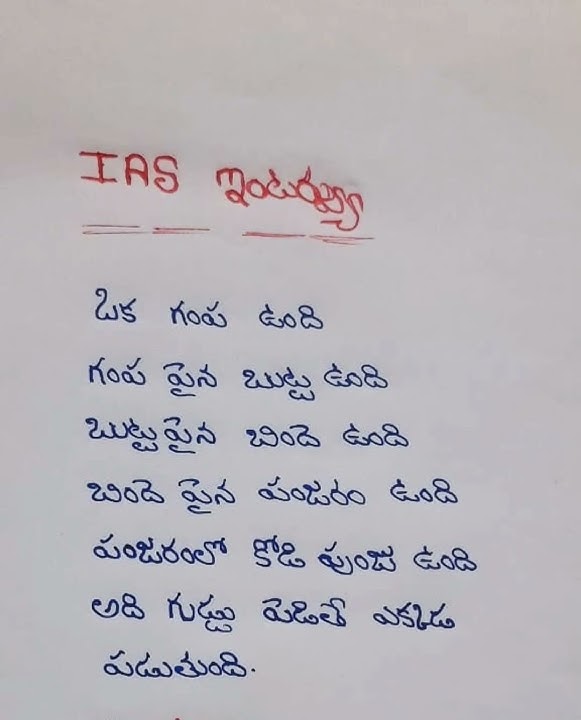 IAS ఇంటర్వ్యూ
ఒక గంప ఉంది
గంప పైన బుట్ట ఉంది
బుట్టపైన బిందె ఉంది
బిందె పైన పంజరం ఉంది
పంజరంలో కోడి పుంజు ఉంది
అది గుడ్డు పెడితే ఎక్కడ
పడుతుంది.